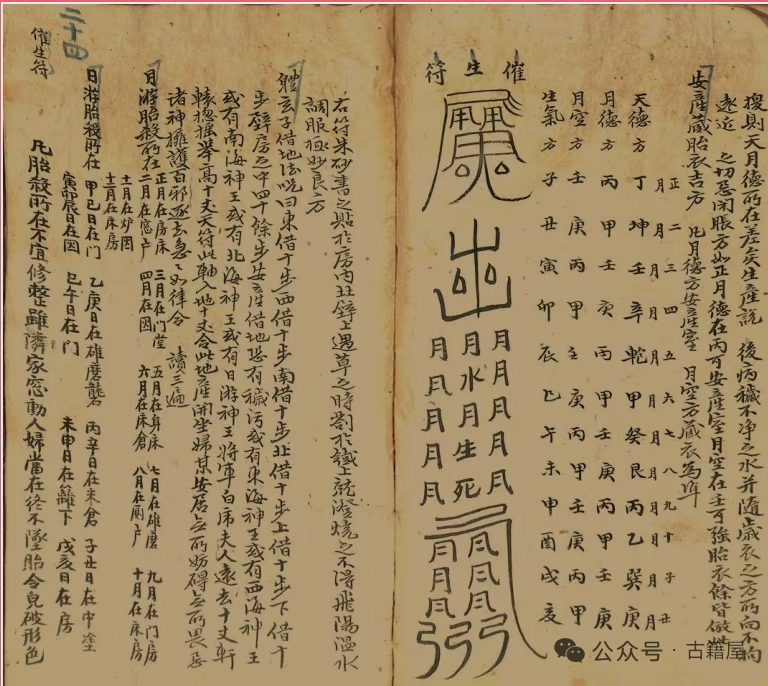 則天月德所在差矣生產說 後病穢不净之水并隨歲衣之方所向不拘
遠近 之切忌閉脹方如正月德在丙可安產室月空在壬可強胎衣餘皆倣
安產藏胎衣吉方 凡月德方安產室 月空方藏衣為準
正月 二月 三月 四月 五月 六月 七月 八月 九月 十月 子月 丑月
天德方 丁 坤 壬 辛 乾 甲 癸 艮 丙 乙 巽 庚
月德方 丙 甲 壬 庚 丙 甲 壬 庚 丙 甲 壬 庚
月空方 壬 庚 丙 甲 壬 庚 丙 甲 壬 庚 丙 甲
生氣方 子 丑 寅 卯 辰 巳 午 未 申 酉 戌 亥
催生符
月月月月月
月水月生死
月月月月月
右符朱砂書之貼於房內北壁上遇草之時劄於鐵上就澄燒之不得飛陽温水
調服極妙良方
體玄子借地法咒曰東借十步西借十步南借十步北借十步上借十步下借十
步壁房之中四十餘步安產借地恐有穢污或有東海神王或有西海神王
或有南海神王或有北海神王或有日游神王將軍白席夫人遠去十丈軒
轅摇舉高十丈天符此軸入地十丈合此地產閑坐婦某安居無所妨碍無所畏忌
諸神擁護百邪逐去急急如律令 讀三遍
月游胎殺所在 正月在房床 三月在門堂 五月在身床 七月在碓磨 九月在門房
二月在窓户 四月在困 六月在床倉 八月在厠户 十月在床房
十一月在炉困
十二月在床房
日游胎殺所在 甲已日在門 乙庚日在碓磨 丙辛日在米倉 子丑日在中堂
寅卯辰日在困 巳午日在門 未申日在籬下 戌亥日在房
凡胎殺所在不宜修整雖隣家窓動人婦當在終不墜胎令皃破形色
催生符
二十四
公众号·古籍屋